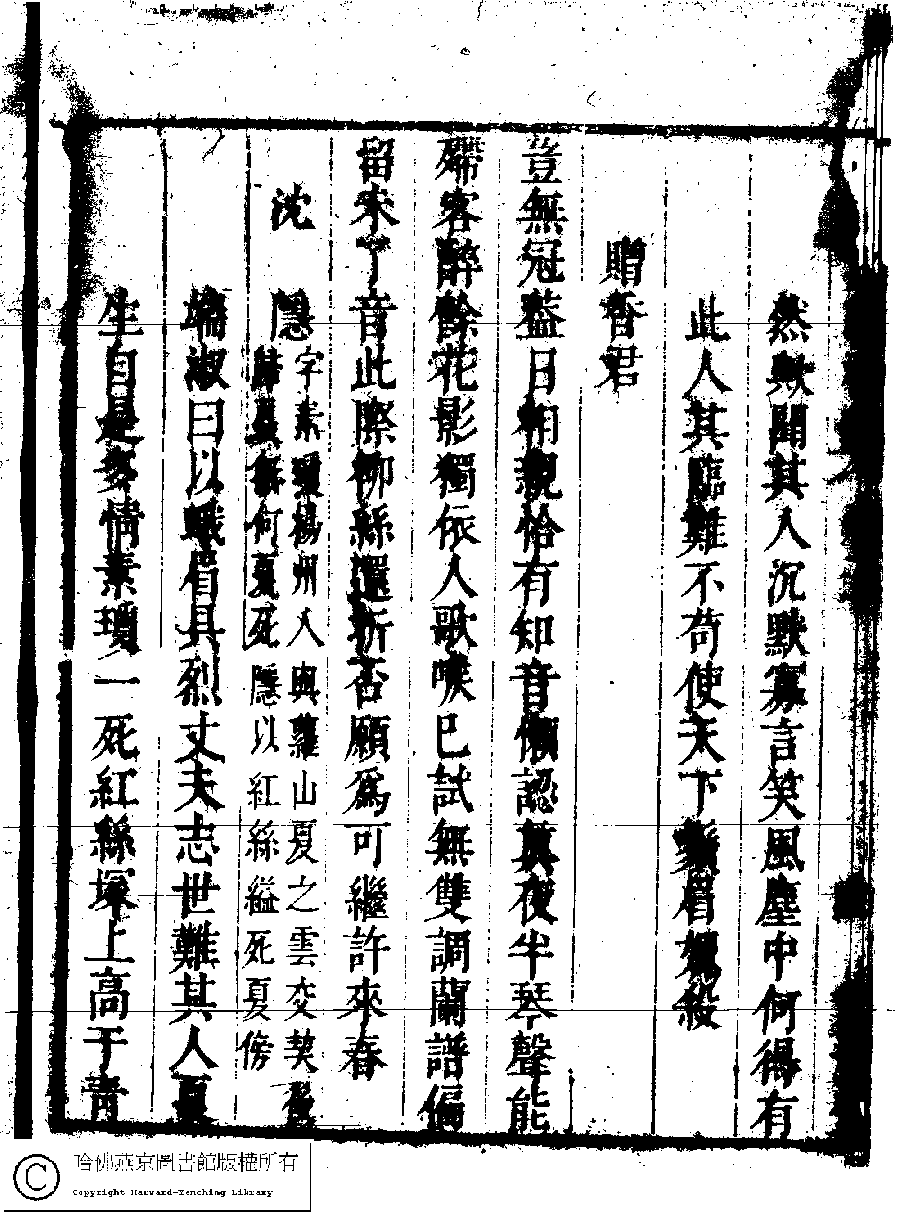 然歟聞其人沉默寡言笑風塵中何得有
此人其臨難不苟使天下鬚眉媿殺
贈香君
豈無冠蓋日相親恰有知音懶認真夜半琴聲能
殢客醉餘花影獨依人歌喉已試無雙調蘭譜偏
留未了音此際柳絲還折否願為可繼許來春
沈隱
字素瓊楊州人與蘿山夏之雲交契
歸夏無何夏死隱以紅絲縊死夏傍
壖淑曰以蛾眉具烈丈夫志世難其人夏
生自是多情素瓊一死紅絲塚上高于青
哈佛燕京圖書館版權所有
Copyright Harvard-Yenching Library